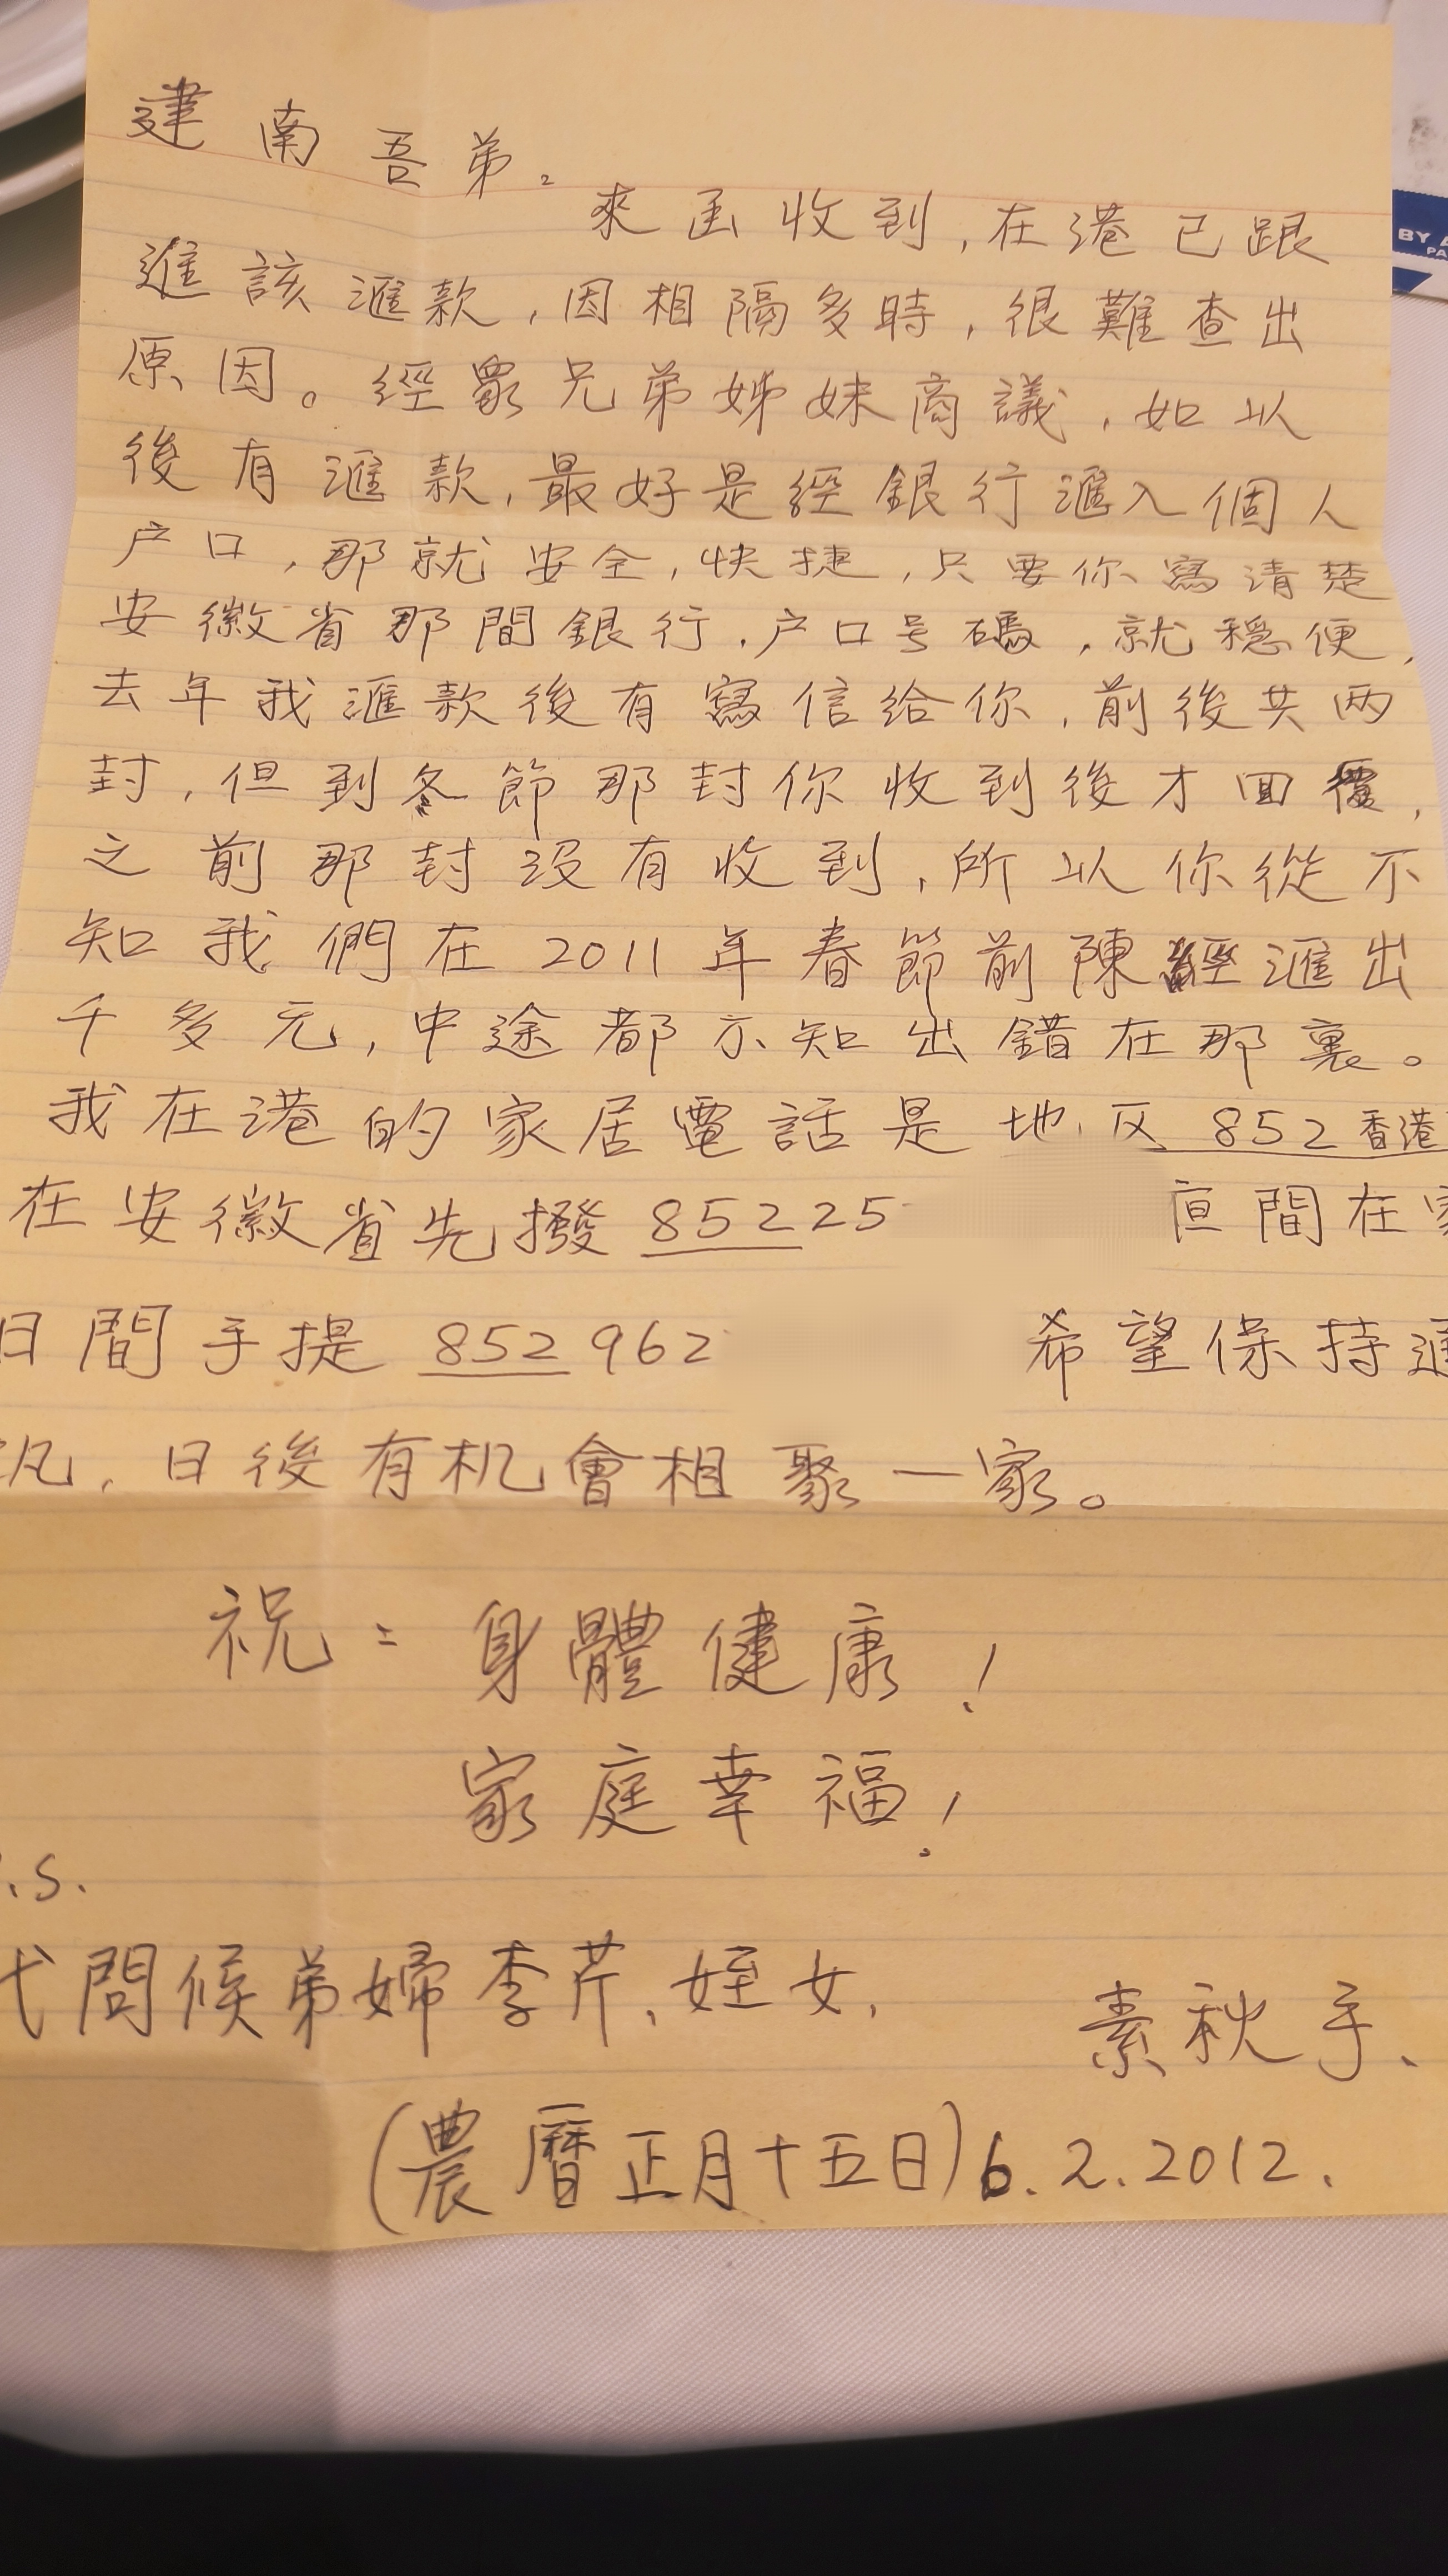 建南吾弟。
來函收到,在港已跟
進該滙款,因相隔多時,很難查出
原因。經眾兄弟姊妹商議,如以
後有滙款,最好是經銀行滙入個人
户口,那就安全,快捷,只要你寫清楚
安徽省那間銀行,户口号碼,就穩便,
去年我滙款後有寫信給你,前後共两
封,但到冬節那封你收到後才回覆,
之前那封没有收到,所以你從不
知我們在2011年春節前陳經滙出
千多元,中途都不知出錯在那裏。
我在港的家居電話是地区852香港
在安徽省先撥85225 亱間在家
日間手提852962 希望保持通
訊,日後有机會相聚一家。
祝:身體健康!
家庭幸福!
.S.
代問候弟婦李芹、姪女,
素秋手、
(農曆正月十五日)6.2.2012.
BY A
PA